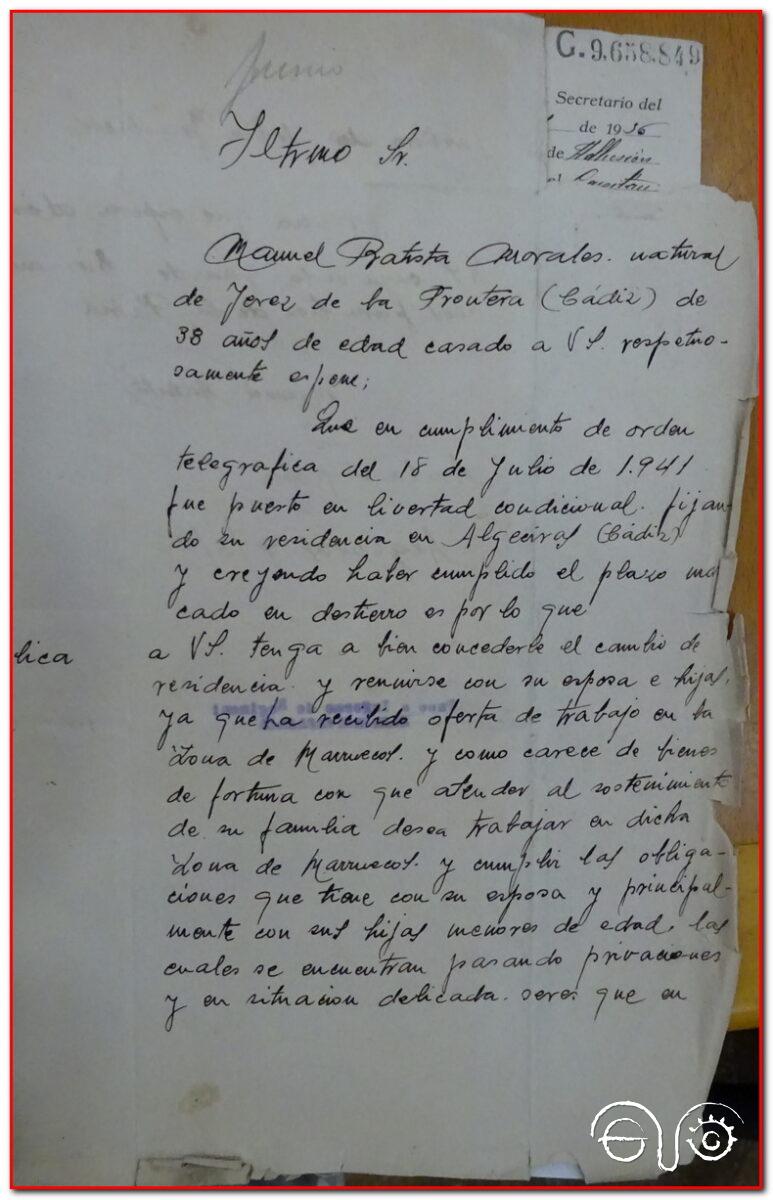 G.9,658.849
Secretario del
de 1936
de
Iltrmo Sr.
Manuel Batista Morales. natural
de Jerez de la Frontera (Cádiz) de
38 años de edad casado a VS. respetuo-
samente espone;
Que en cumplimiento de orden
telegrafica del 18 de Julio de 1.941
fue puesto en livertad condicional. fijan-
do su residencia en Algeciras (Cádiz)
y creyendo haber cumplido el plazo mar
cado en destierro es por lo que
lica
a VS. tenga a bien concederle el cambio de
residencia. y reunirse con su esposa e hijas,
ya que ha recibido oferta de trabajo en la
Zona de Marruecos. y como carece de bienes
de fortuna con que atender al sostenimiento
de su familia desea trabajar en dicha
Zona de Marruecos. y cumplir las obliga-
ciones que tiene con su esposa y principal-
mente con sus hijas menores de edad, las
cuales se encuentran pasando privaciones
y en situacion delicada. seres que en